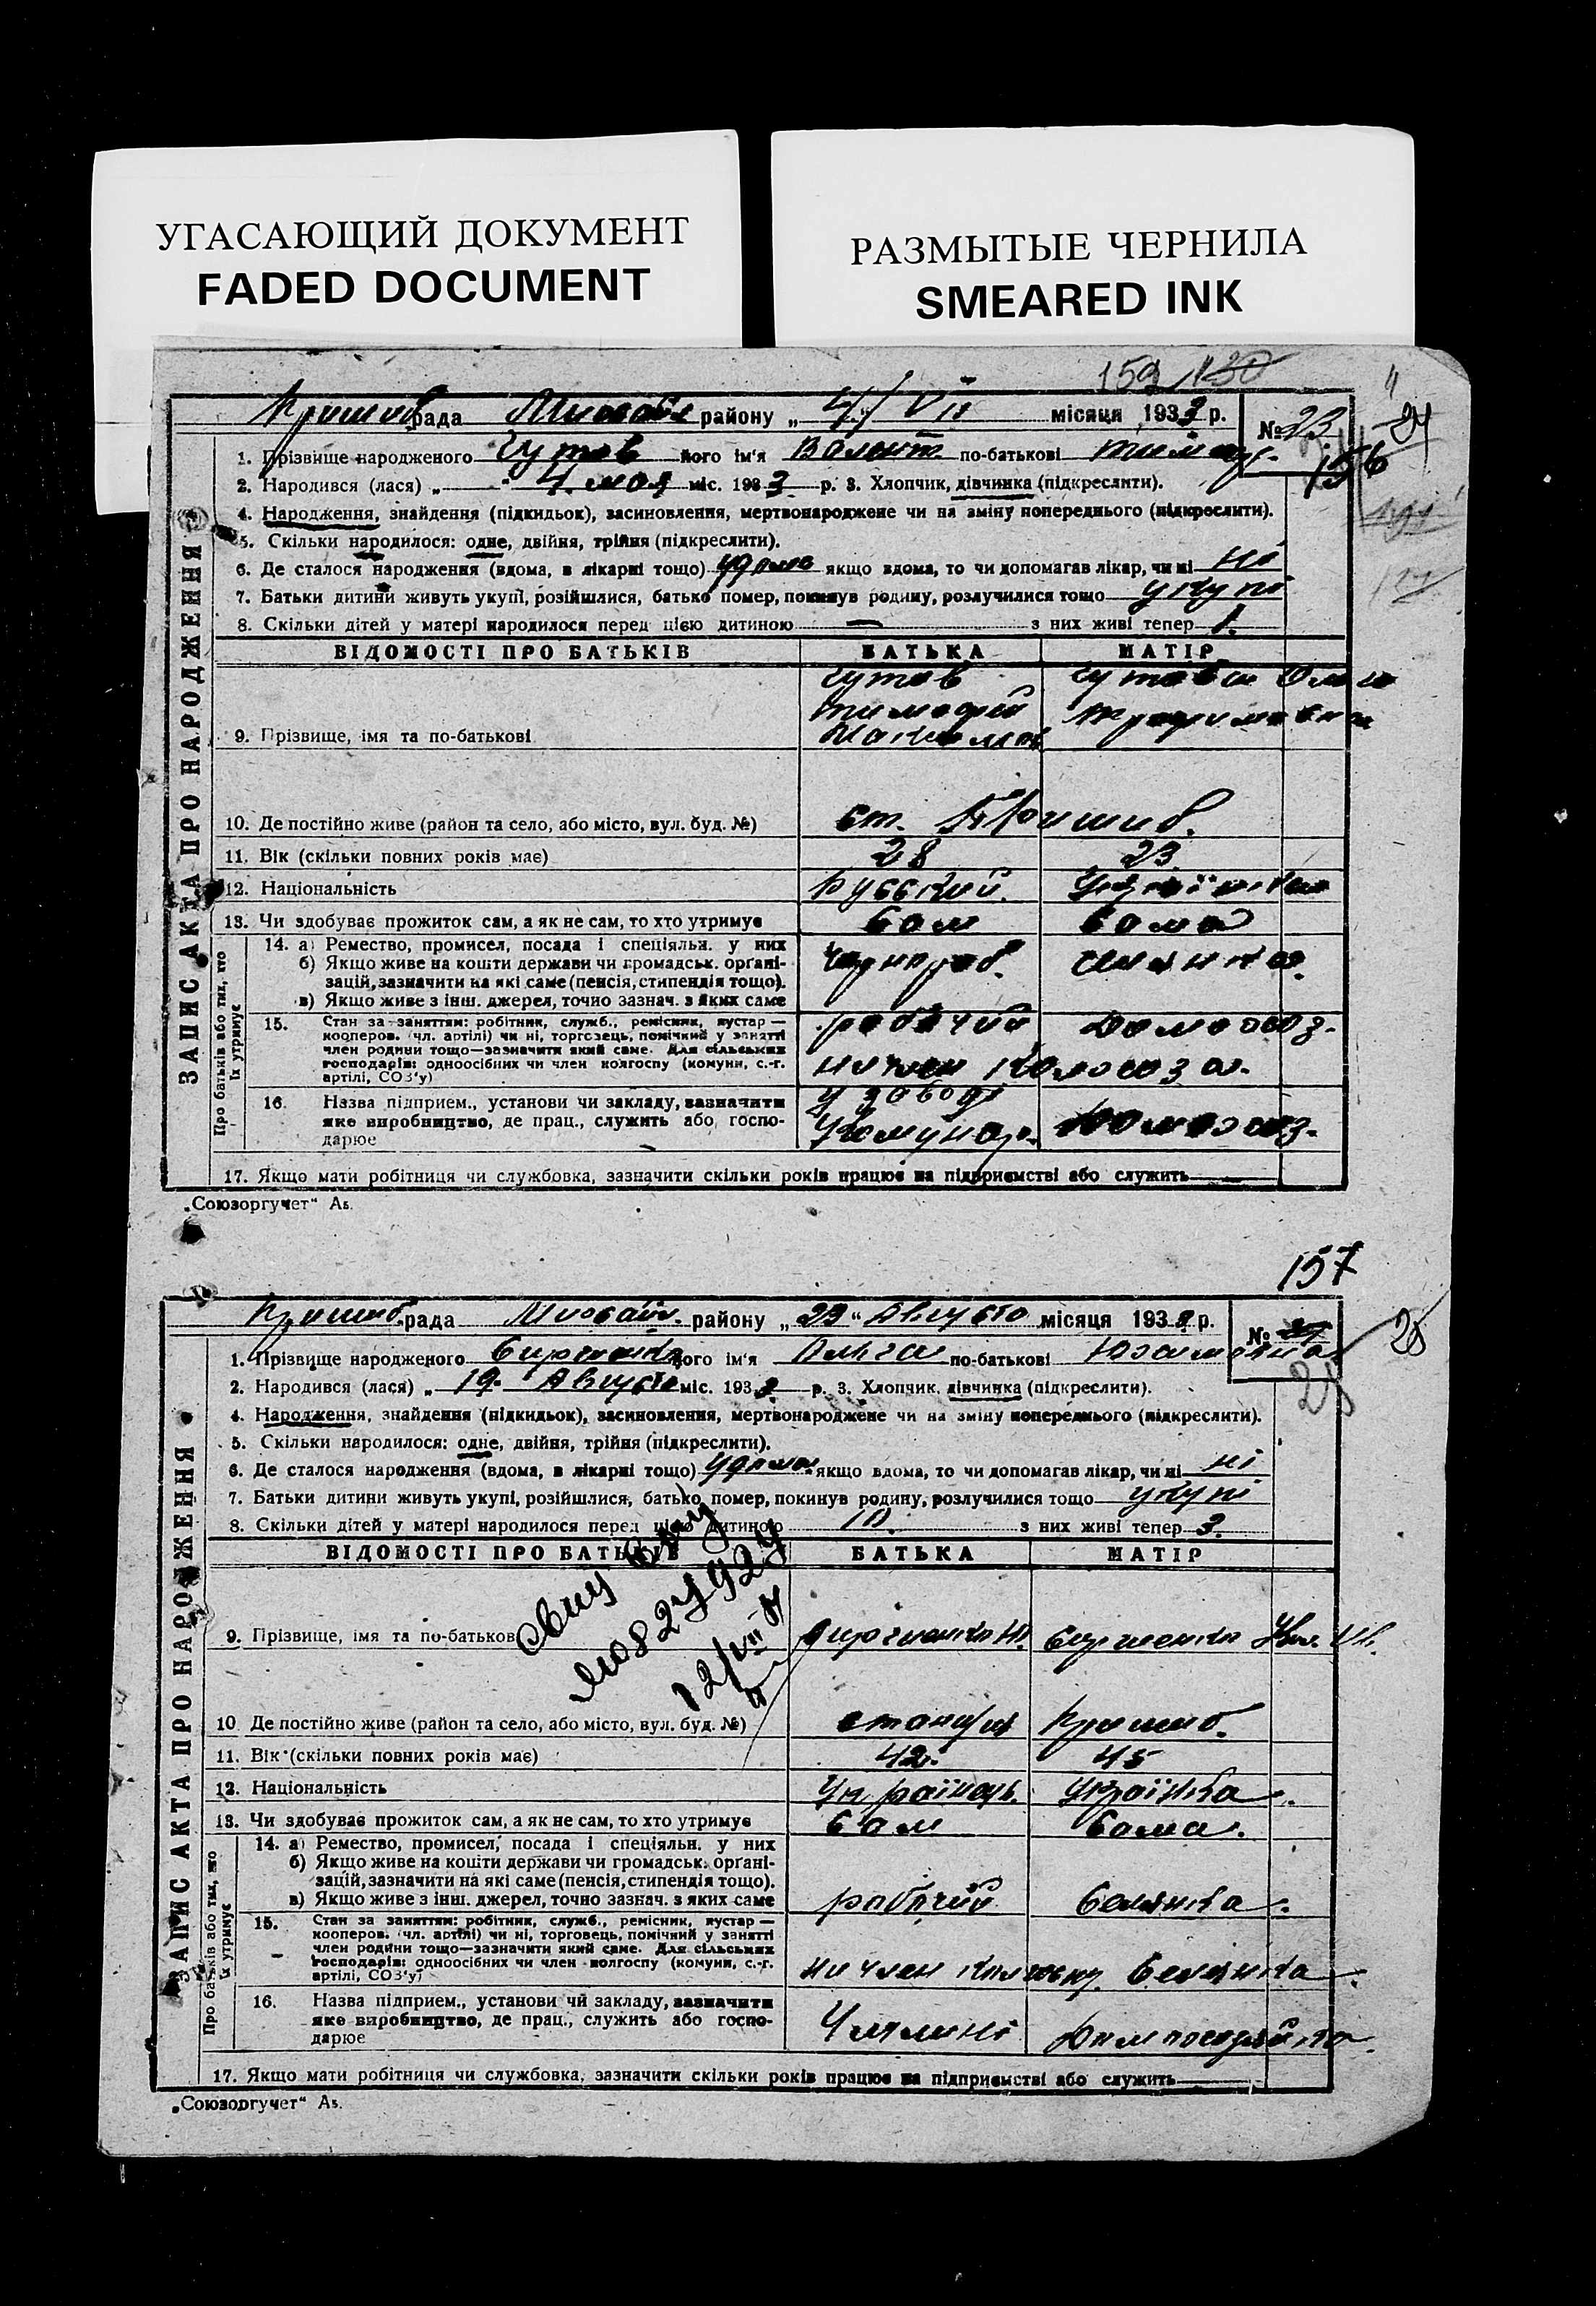 УГАСАЮЩИЙ ДОКУМЕНТ
FADED DOCUMENT
РАЗМЫТЫЕ ЧЕРНИЛА
SMEARED INK
рада району „ 4 “ VII місяця 1933 р.
№ 23
156
1. Прізвище народженого Гутов його ім'я Валент. по-батькові
2. Народився (лася) „ 4 мая міс. 1933 р. 3. Хлопчик, дівчинка (підкреслити).
4. Народження, знайдення (підкидьок), засиновлення, мертвонароджене чи на зміну попереднього (підкреслити).
5. Скільки народилося: одне, двійня, трійня (підкреслити).
6. Де сталося народження (вдома, в лікарні тощо) удома якщо вдома, то чи допомагав лікар, чи ні ні
7. Батьки дитини живуть укупі, розійшлися, батько помер, покинув родину, розлучилися тощо укупі
8. Скільки дітей у матері народилося перед цією дитиною — з них живі тепер 1.
ЗАПИС АКТА ПРО НАРОДЖЕННЯ
ВІДОМОСТІ ПРО БАТЬКІВ БАТЬКА МАТІР
Гутов
Тимофей
9. Прізвище, імя та по-батькові
10. Де постійно живе (район та село, або місто, вул. буд. №) ст. Пришиб.
11. Вік (скільки повних років має) 28 23
12. Національність Русский. Українка
13. Чи здобуває прожиток сам, а як не сам, то хто утримує сам сама
Про батьків або тих, хто їх утримує
14. а) Ремество, промисел, посада і спеціяльн. у них
б) Якщо живе на кошти держави чи громадськ. органі-
зацій, зазначити на які саме (пенсія, стипендія тощо).
в) Якщо живе з інш. джерел, точно зазнач. з яких саме
Чорнороб. селянка.
15. Стан за заняттям: робітник, служб., ремісник, кустар —
кооперов. (чл. артілі) чи ні, торговець, помічний у занятті
член родини тощо—зазначити який саме. Для сільських
господарів: одноосібних чи член колгоспу (комуни, с.-г.
артілі, СОЗ'у)
робочий
16. Назва підприєм., установи чи закладу, зазначити
яке виробництво, де прац., служить або госпо-
дарює
у заводі
17. Якщо мати робітниця чи службовка, зазначити скільки років працює на підприємстві або служить —
„Союзоргучет“ Аб.
157
Пришиб. рада Михайл. району „ 23 “ Августа місяця 1933 р.
№
25
1. Прізвище народженого його ім'я Ольга по-батькові
2. Народився (лася) „ 19 Августа міс. 1933 р. 3. Хлопчик, дівчинка (підкреслити).
4. Народження, знайдення (підкидьок), засиновлення, мертвонароджене чи на зміну попереднього (підкреслити).
5. Скільки народилося: одне, двійня, трійня (підкреслити).
6. Де сталося народження (вдома, в лікарні тощо) удома якщо вдома, то чи допомагав лікар, чи ні ні
7. Батьки дитини живуть укупі, розійшлися, батько помер, покинув родину, розлучилися тощо укупі
8. Скільки дітей у матері народилося перед цією дитиною 10. з них живі тепер 3.
ЗАПИС АКТА ПРО НАРОДЖЕННЯ
ВІДОМОСТІ ПРО БАТЬКІВ БАТЬКА МАТІР
9. Прізвище, імя та по-батькові
10. Де постійно живе (район та село, або місто, вул. буд. №) станція Пришиб.
11. Вік (скільки повних років має) 42. 45
12. Національність Українець. українка.
13. Чи здобуває прожиток сам, а як не сам, то хто утримує сам сама.
Про батьків або тих, хто їх утримує
14. а) Ремество, промисел, посада і спеціяльн. у них
б) Якщо живе на кошти держави чи громадськ. органі-
зацій, зазначити на які саме (пенсія, стипендія тощо).
в) Якщо живе з інш. джерел, точно зазнач. з яких саме
рабочий селянка.
15. Стан за заняттям: робітник, служб., ремісник, кустар —
кооперов. (чл. артілі) чи ні, торговець, помічний у занятті
член родини тощо—зазначити який саме. Для сільських
господарів: одноосібних чи член колгоспу (комуни, с.-г.
артілі, СОЗ'у)
ни член селянка.
16. Назва підприєм., установи чи закладу, зазначити
яке виробництво, де прац., служить або госпо-
дарює
У млині
17. Якщо мати робітниця чи службовка, зазначити скільки років працює на підприємстві або служить —
„Союзоргучет“ Аб.